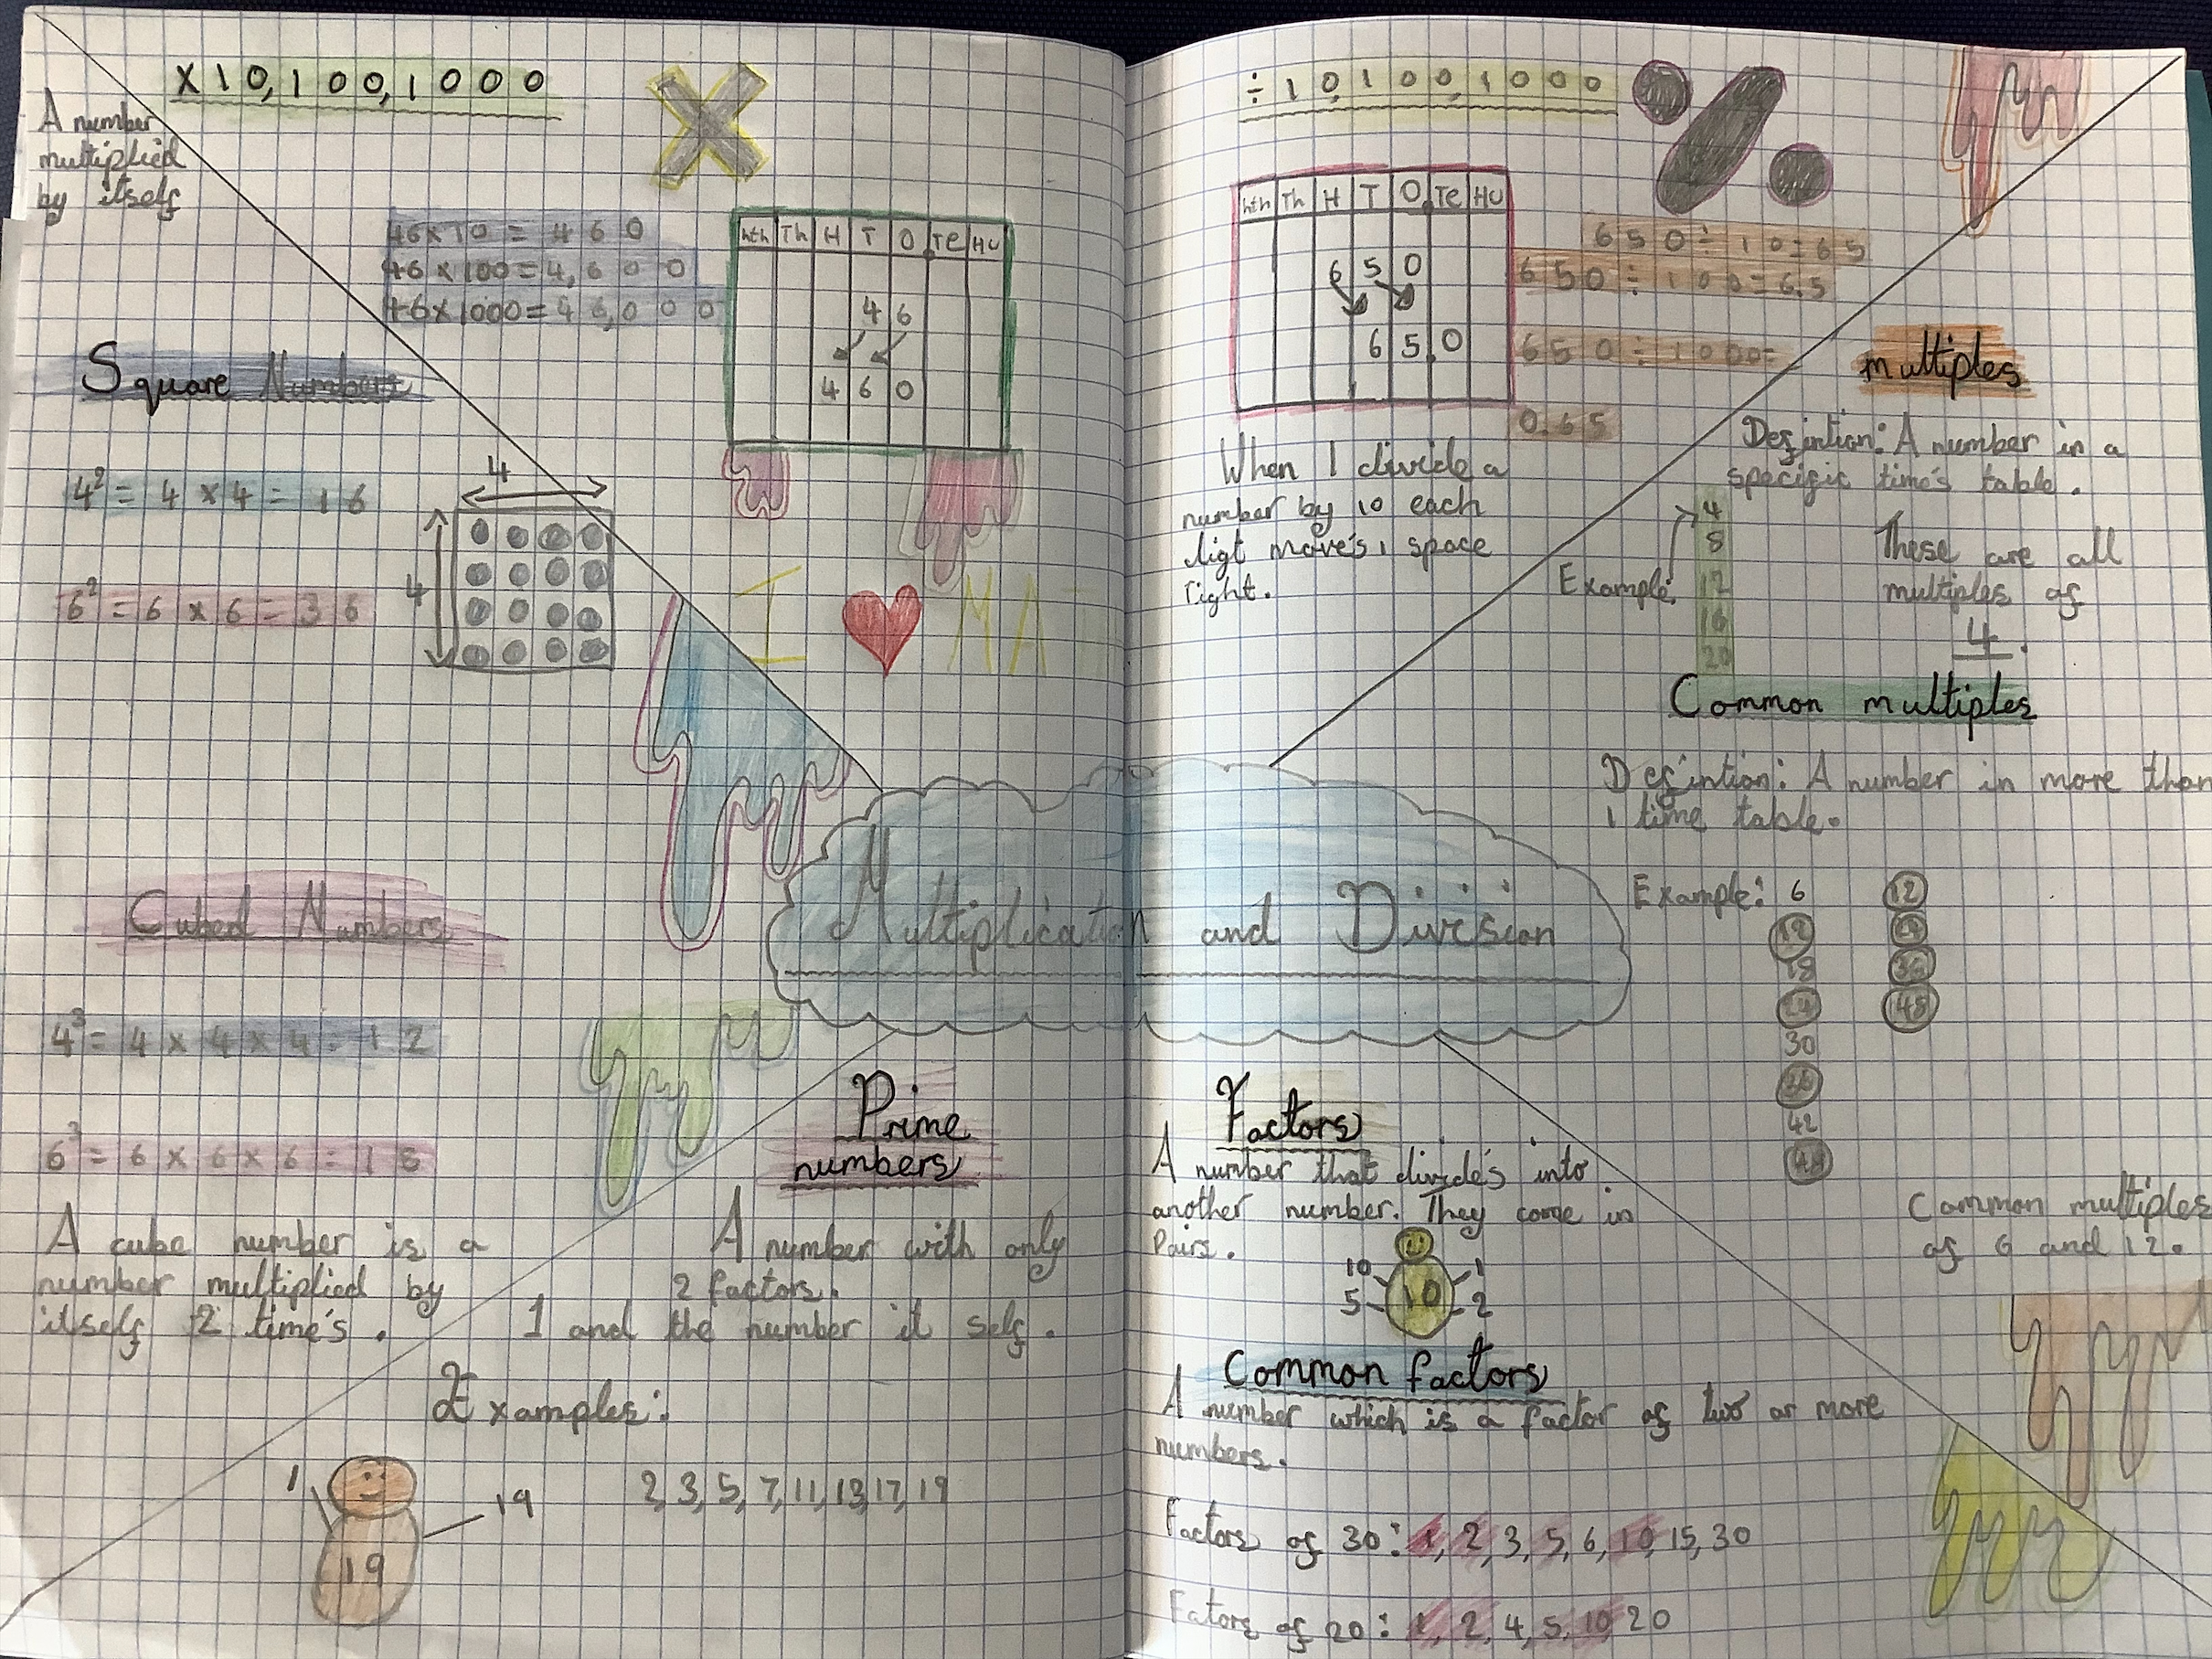 x 10, 100, 1000
A number
multiplied
by itself
46 x 10 = 460
46 x 100 = 4,600
46 x 1000 = 46,000
hth Th H T O Te Hu
4 6
4 6 0
Square Numbers
4² = 4 x 4 = 16
6² = 6 x 6 = 36
4
4
I ❤ MAT
Cubed Numbers
4³ = 4 x 4 x 4 = 12
6³ = 6 x 6 x 6 = 18
A cube number is a
number multiplied by
itself 2 time's.
Multiplication and Division
Prime
numbers
A number with only
2 factors.
1 and the number it self.
Examples:
1
19
19
2, 3, 5, 7, 11, 13, 17, 19
÷ 10, 100, 1000
hth Th H T O Te Hu
6 5 0
6 5 . 0
650 ÷ 10 = 65
650 ÷ 100 = 6.5
650 ÷ 1000 =
0.65
When I divide a
number by 10 each
digt move's 1 space
right.
multiples
Defintion: A number in a
specific time's table.
Example:
4
8
12
16
20
These are all
multiples of
4.
Common multiples
Defintion: A number in more than
1 time table.
Example: 6 12
12 24
18 36
24 48
30
36
42
48
Common multiples
of 6 and 12.
Factors
A number that divide's into
another number. They come in
Pairs.
10 1
10
5 2
Common factors
A number which is a factor of two or more
numbers.
Factors of 30: 1, 2, 3, 5, 6, 10, 15, 30
Fators of 20: 1, 2, 4, 5, 10, 20